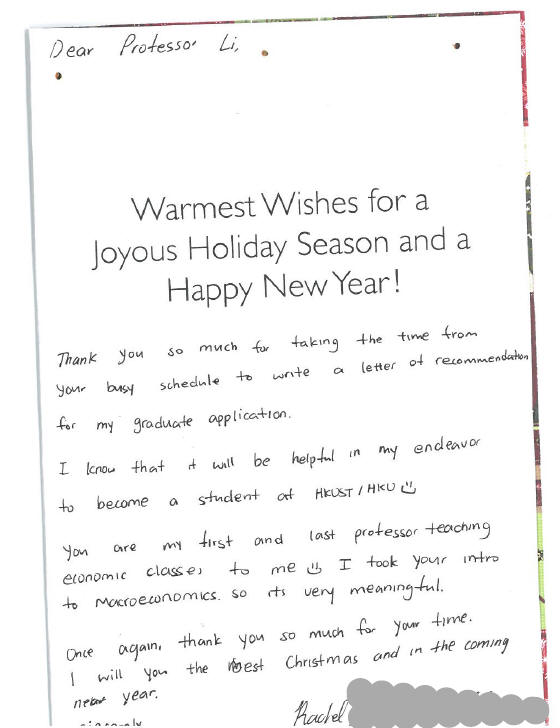 Dear Professor Li,
Warmest Wishes for a
Joyous Holiday Season and a
Happy New Year!
Thank you so much for taking the time from
your busy schedule to write a letter of recommendation
for my graduate application.
I know that it will be helpful in my endeavor
to become a student at HKUST / HKU
You are my first and last professor teaching
economic classes to me I took your intro
to Macroeconomics. so its very meaningful.
Once again, thank you so much for your time.
I will you the best Christmas and in the coming
new year.
Rachel